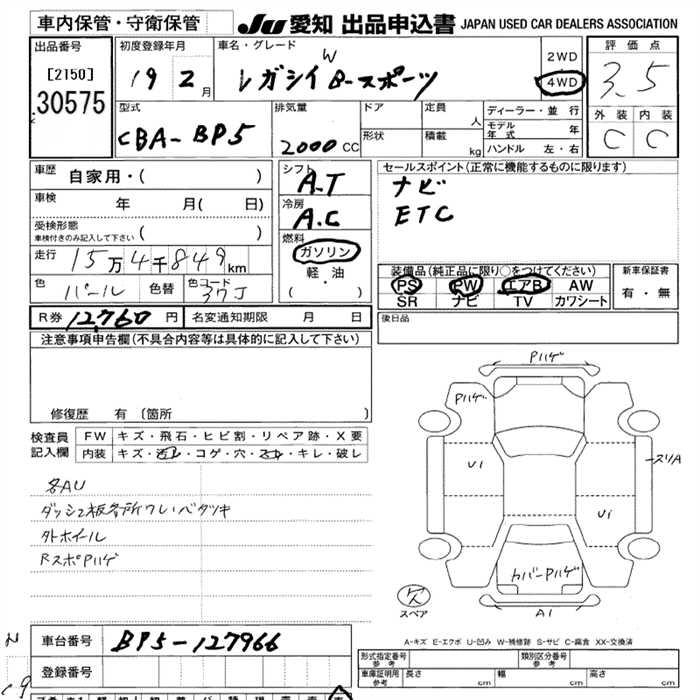 車内保管・守衛保管
JU 愛知 出品申込書 JAPAN USED CAR DEALERS ASSOCIATION
出品番号
[2150]
30575
初度登録年月
19 2月
車名・グレード
レガシイW B-スポーツ
2WD
4WD
評価点
3.5
外装 内装
C C
型式
CBA-BP5
排気量
2000 CC
ドア
形状
定員 人
積載 kg
ディーラー・並行
モデル年式 年
ハンドル 左・右
車歴 自家用・( )
車検 年 月( 日)
受検形態
車検付きのみ記入して下さい ( )
走行 15万4千849km
色 パール 色替 色コード 37J
シフト
A.T
冷房
A.C
燃料
ガソリン
軽・油
( ・ )
セールスポイント(正常に機能するものに限ります)
ナビ
ETC
装備品(純正品に限り○をつけてください)
PS PW エアB AW
SR ナビ TV カワシート
新車保証書
有・無
R券 12,760円 名変通知期限 月 日
後日品
注意事項申告欄(不具合内容等は具体的に記入して下さい)
修復歴 有 (箇所 )
検査員
記入欄
FW キズ・飛石・ヒビ割・リペア跡・X要
内装 キズ・汚レ・コゲ・穴・スレ・キレ・破レ
各AU
ダッシュ板各所ワレ・ベタツキ
外ホイール
RスポPハゲ
Pハゲ
Pハゲ
U1
スリA
U1
カバーPハゲ
A1
欠
スペア
A-キズ E-エクボ U-凹み W-補修跡 S-サビ C-腐食 XX-交換済
車台番号 BP5-127966
登録番号
形式指定番号
参考
類別区分番号
参考
車庫証明用
参考
長さ cm 幅 cm 高さ cm
N